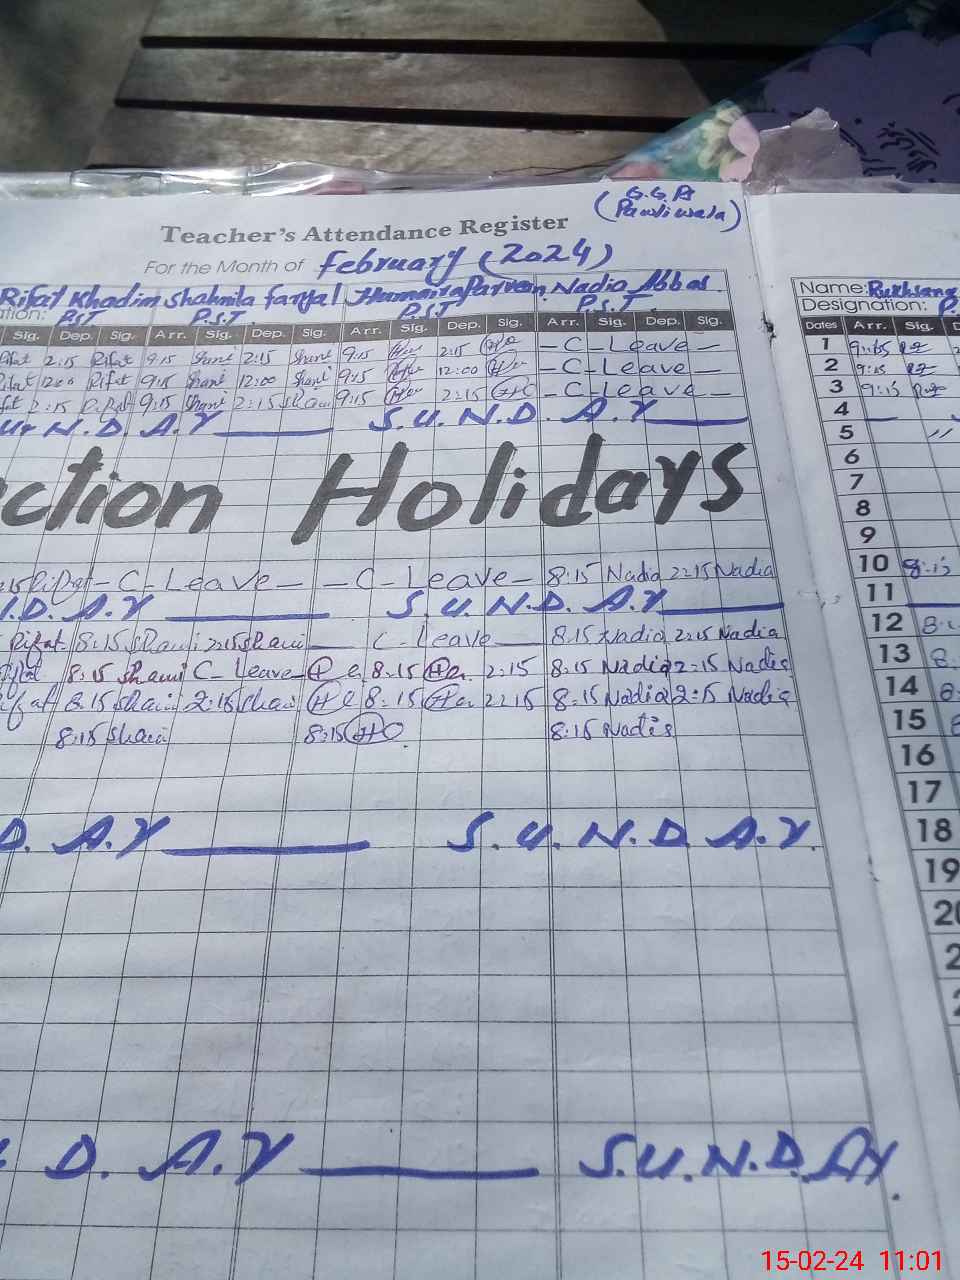 G.G.P.S
(Pawliwala)
Teacher's Attendance Register
For the Month of February (2024)
Rifat Khadim Shahnila faryal Humaira Parveen Nadia Abbas
tion: P.S.T P.S.T P.S.T P.S.T
Sig. Dep. Sig. Arr. Sig. Dep. Sig. Arr. Sig. Dep. Sig. Arr. Sig. Dep. Sig.
Rifat 2:15 Rifat 9:15 Shani 2:15 Shani 9:15 2:15 - C - Leave -
Rifat 12:00 Rifat 9:15 Shani 12:00 Shani 9:15 12:00 - C - Leave -
fat 2:15 Rifat 9:15 Shani 2:15 Shani 9:15 2:15 - C - Leave -
U. N. D. A. Y S. U. N. D. A. Y
ction Holidays
:15 Rifat - C - Leave - - C - Leave - 8:15 Nadia 2:15 Nadia
. D. A. Y S. U. N. D. A. Y
Rifat 8:15 Shani 2:15 Shani C - Leave 8:15 Nadia 2:15 Nadia
Rifat 8:15 Shani C - Leave 8:15 2:15 8:15 Nadia 2:15 Nadia
ifat 8:15 Shani 2:15 Shani 8:15 2:15 8:15 Nadia 2:15 Nadia
8:15 Shani 8:15 8:15 Nadia
D. A. Y S. U. N. D. A. Y.
D. A. Y S. U. N. D. A Y.
Name: Rukhsana
Designation: P.
Dates Arr. Sig. D
1
2 9:15
3 9:15
4
5 "
6
7
8
9
10 8:15
11
12 8:
13 8.
14 8
15 8
16
17
18
19
20
2
2
15-02-24 11:01